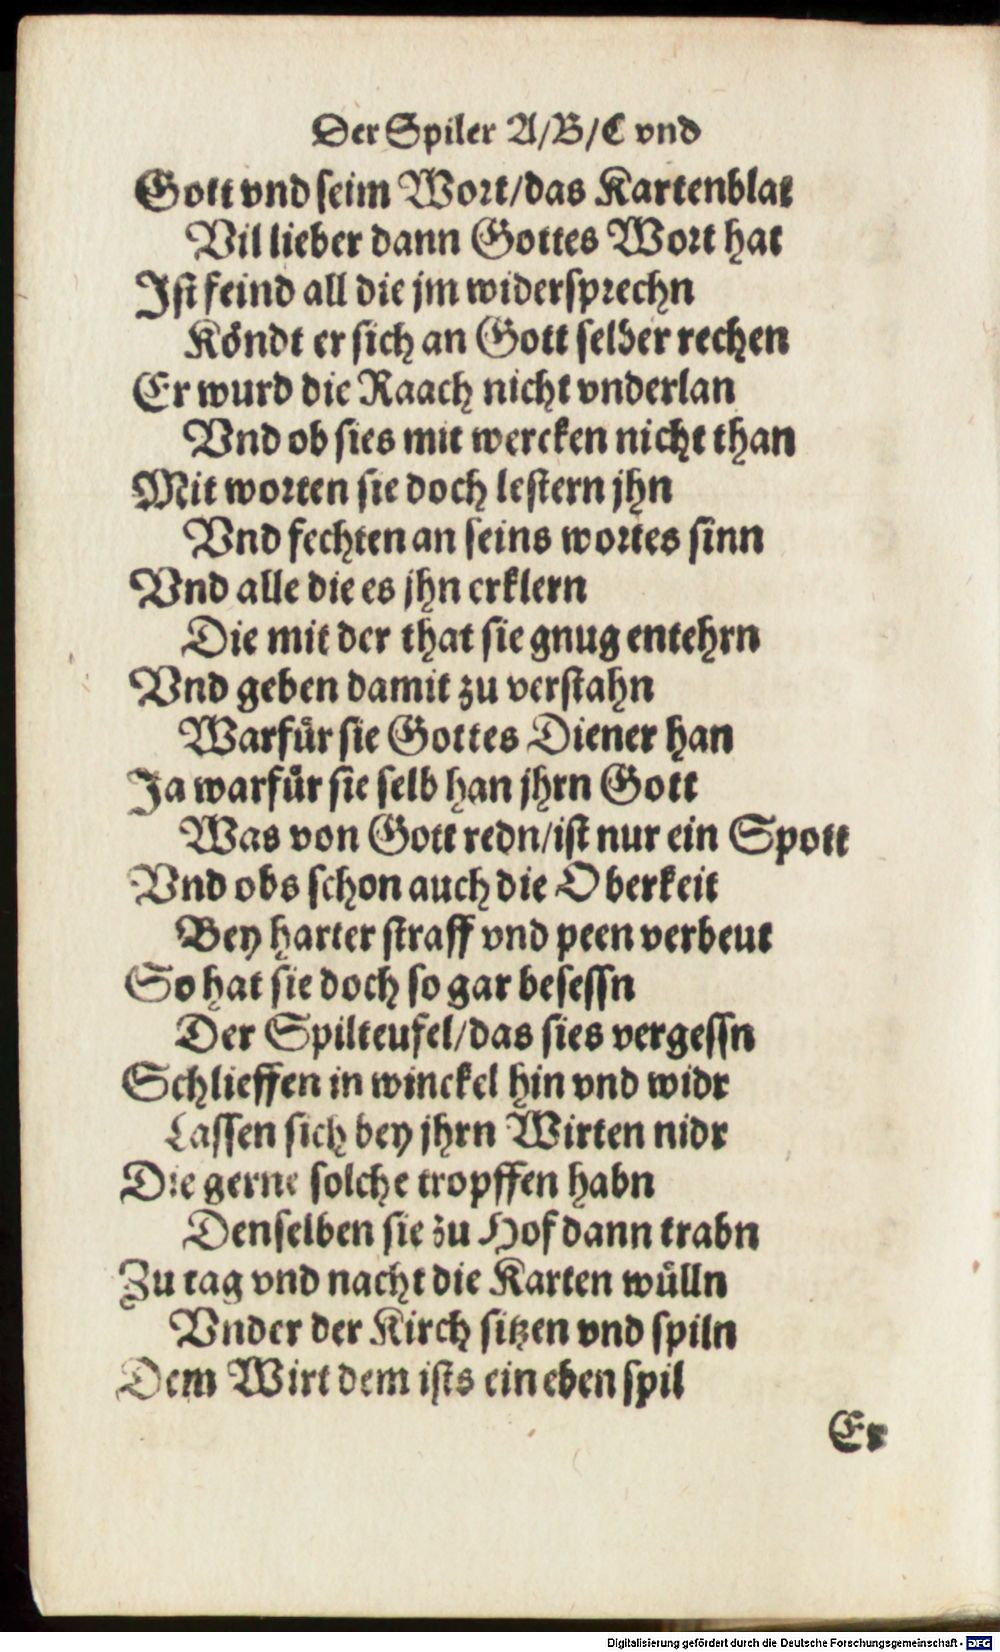 Der Spiler A/B/C vnd
Gott vnd seim Wort/das Kartenblat
Vil lieber dann Gottes Wort hat
Ist feind all die jm widersprechn
Köndt er sich an Gott selber rechen
Er wurd die Raach nicht vnderlan
Vnd ob sies mit wercken nicht than
Mit worten sie doch lestern jhn
Vnd fechten an seins wortes sinn
Vnd alle die es jhn erklern
Die mit der that sie gnug entehrn
Vnd geben damit zu verstahn
Warfür sie Gottes Diener han
Ja warfür sie selb han jhrn Gott
Was von Gott redn/ist nur ein Spott
Vnd obs schon auch die Oberkeit
Bey harter straff vnd peen verbeut
So hat sie doch so gar besessn
Der Spilteufel/das sies vergessn
Schlieffen in winckel hin vnd widr
Lassen sich bey jhrn Wirten nidr
Die gerne solche tropffen habn
Denselben sie zu Hof dann trabn
Zu tag vnd nacht die Karten wülln
Vnder der Kirch sitzen vnd spiln
Dem Wirt dem ists ein eben spil
Er
Digitalisierung gefördert durch die Deutsche Forschungsgemeinschaft - DFG